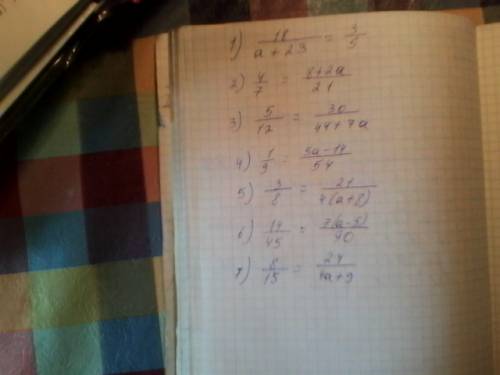 1) 18/(a+23) = 3/5
2) 4/7 = (8+2a)/21
3) 5/12 = 30/(44+7a)
4) 1/9 = (5a-14)/54
5) 3/8 = 21/(4(a+8))
6) 14/45 = 7(a-5)/90
7) 8/15 = 24/(4a+9)